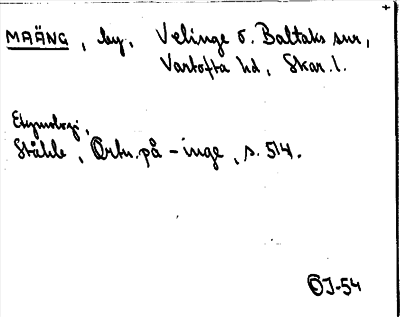 MAÄNG, by, Velinge o. Baltaks snr,
Vartofta hd, Skar. l.
Etymologi,
Ståhle, Ortn. på -inge, s. 514.
OJ-54